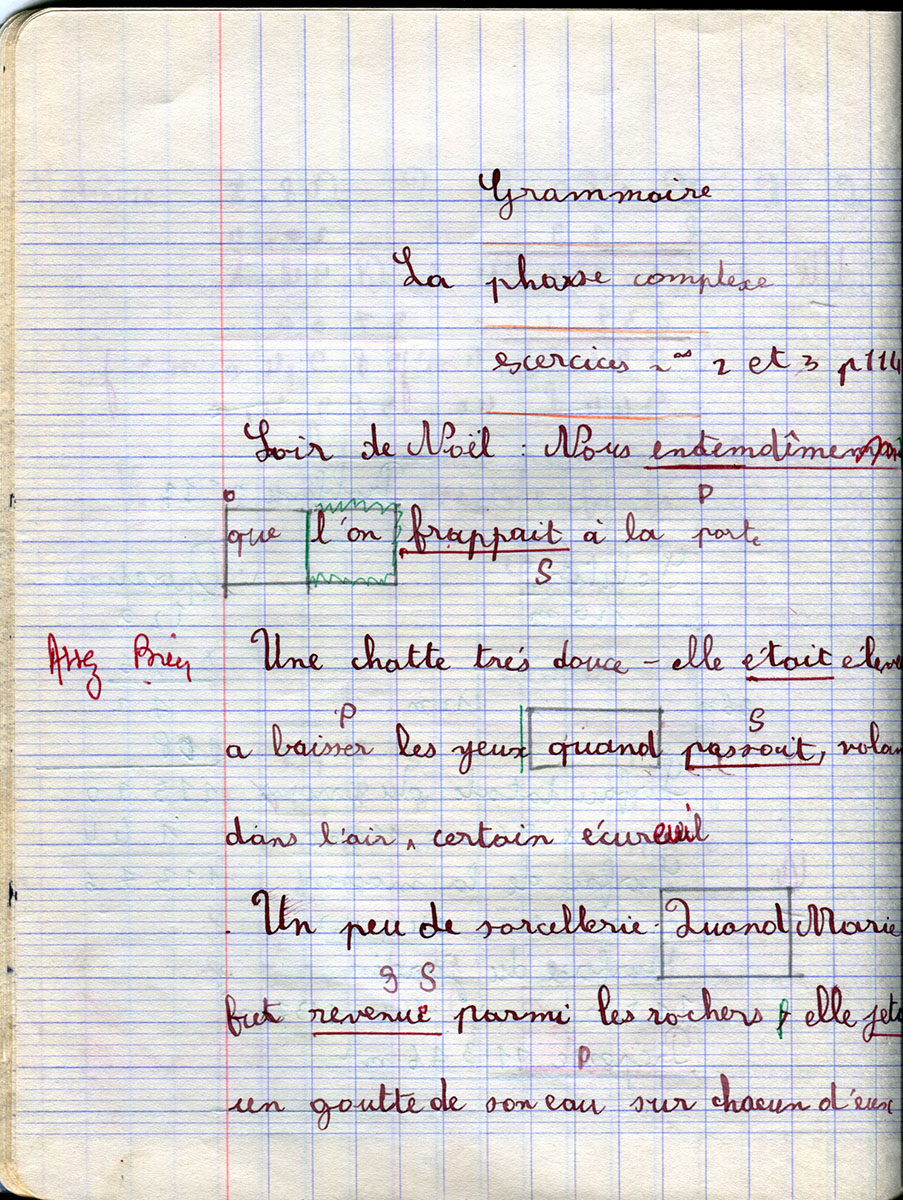 Grammaire
La phrase complexe
exercices nos 2 et 3 p114
Soir de Noël : Nous entendîmes
P
que l'on frappait à la porte
S
Assez Bien
Une chatte trés douce - elle était éleve
P S
a baisser les yeux quand passait, volan
dans l'air, certain écureuil
. Un peu de sorcellerie - Quand Marie
S
fut revenue parmi les rochers, elle jeta
P
un goutte de son eau sur chacun d'eux